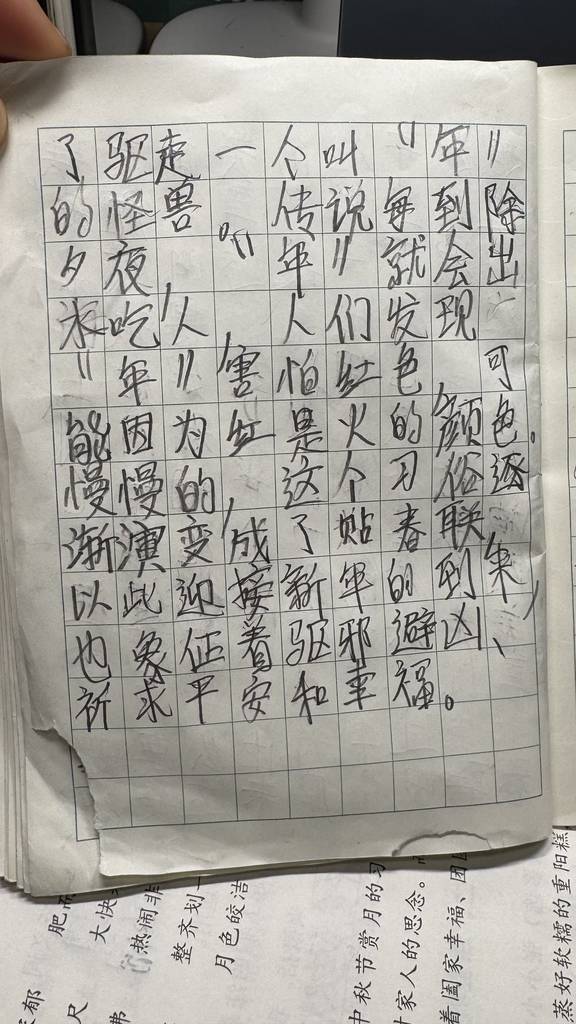 了驱走一个叫“年”
的怪兽。传说每到除
夕夜，“年”就会出
来吃人，人们发现
“年”害怕红色，可
能因为红是火的颜色。
慢慢的，这个习俗逐
渐演变成了贴春联，
以此迎接新年的到来，
也象征着驱邪避凶、
祈求平安和幸福。
肥而
大快
热闹非
整齐划一
月色皎洁
中秋节赏月的习
家人的思念。
着阖家幸福、团
蒸好软糯的重阳糕
郁
尺